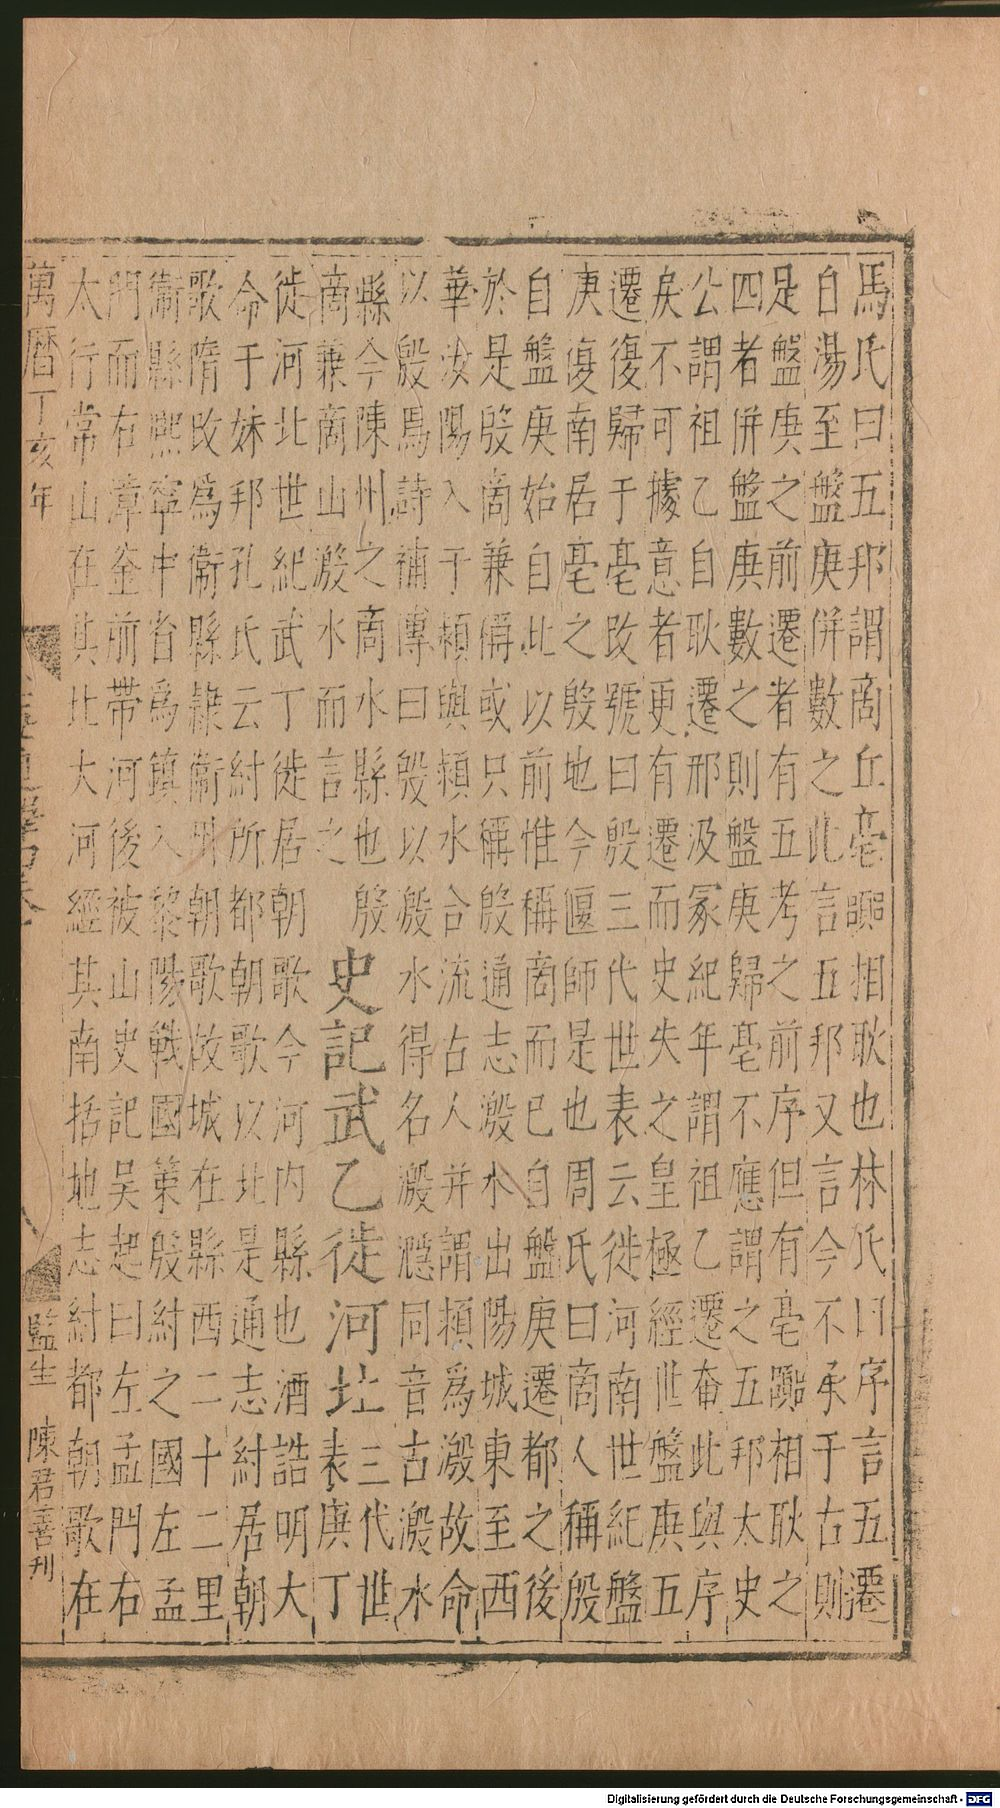 馬氏曰五邦謂商丘亳囂相耿也林氏曰序言五遷
自湯至盤庚併數之此言五邦又言今不承于古則
足盤庚之前遷者有五考之前序但有亳囂相耿之
四者併盤庚數之則盤庚歸亳不應謂之五邦太史
公謂祖乙自耿遷邢汲冢紀年謂祖乙遷奄此與序
戾不可據意者更有遷而史失之皇極經世盤庚五
遷復歸于亳改號曰殷三代世表云徙河南世紀盤
庚復南居亳之殷地今偃師是也周氏曰商人稱殷
自盤庚始自此以前惟稱商而已自盤庚遷都之後
於是殷商兼稱或只稱殷通志濦水出陽城東至西
華汝陽入于潁與潁水合流古人并謂潁為濦故命
以殷馬詩補傳曰殷以濦水得名濦㶏同音古濦水
縣今陳州之商水縣也 殷 史記武乙徙河北 三代世
商兼商山濦水而言之 表庚丁
徙河北世紀武丁徙居朝歌今河内縣也酒誥明大
命于妹邦孔氏云紂所都朝歌以北是通志紂居朝
歌隋改為衞縣隸衞州朝歌故城在縣西二十二里
衞縣熙寧中省為鎮入黎陽戰國策殷紂之國左孟
門而右漳釜前帶河後被山史記吳起曰左孟門右
太行常山在其北大河經其南括地志紂都朝歌在
萬曆丁亥年
監生 陳君善刊
Digitalisierung gefördert durch die Deutsche Forschungsgemeinschaft - DFG